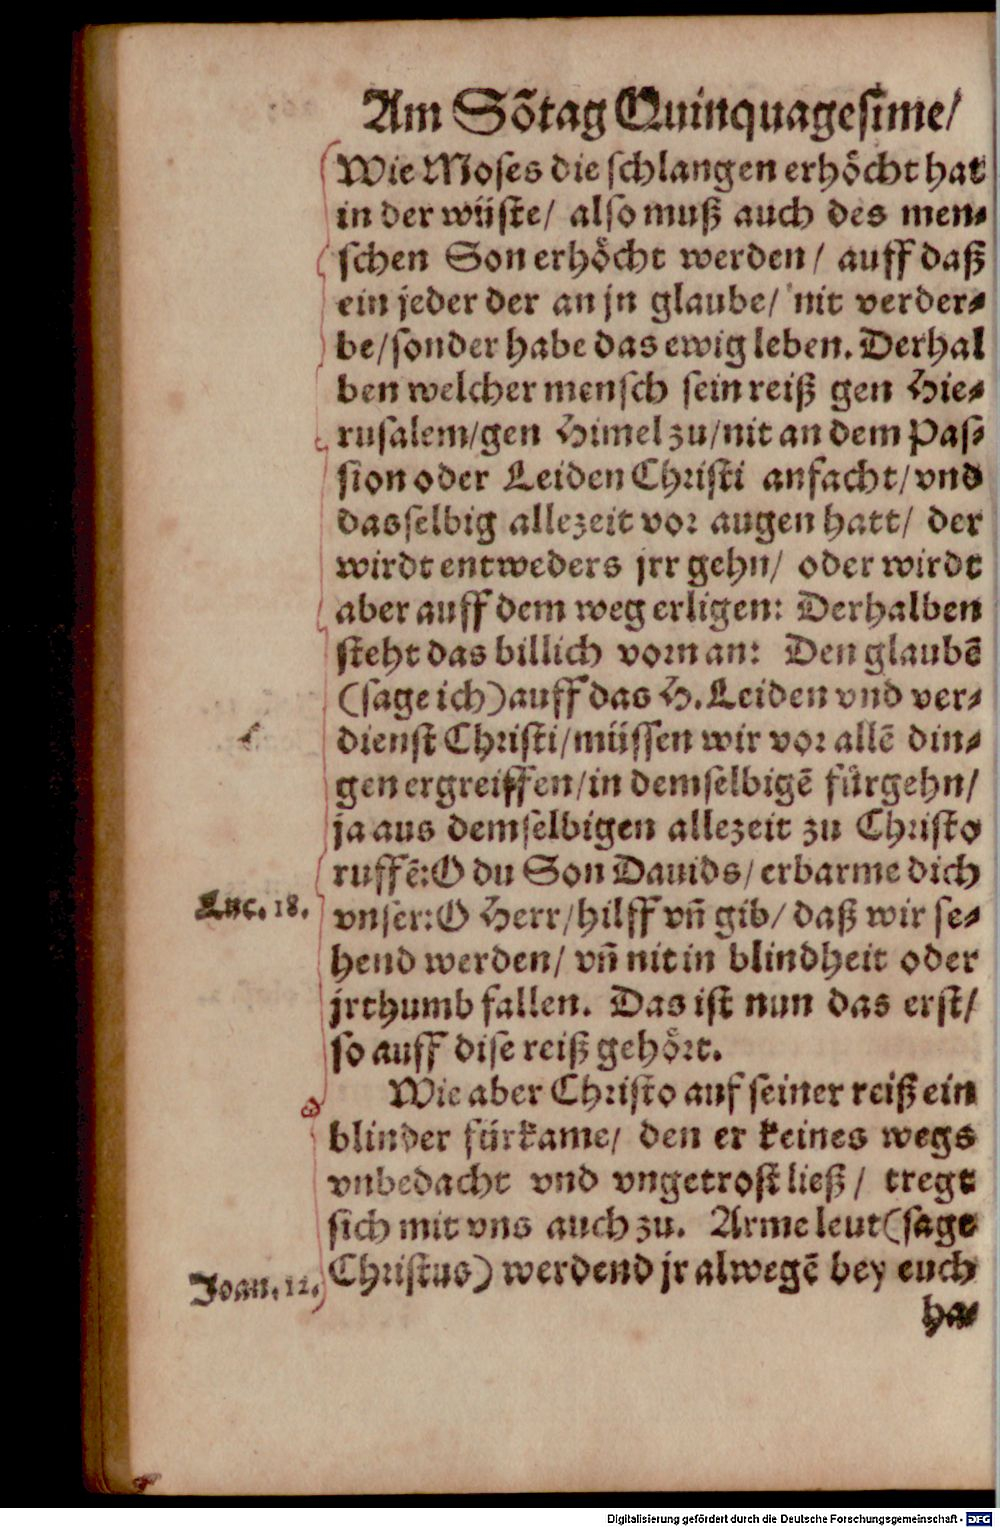 Am Sõtag Quinquagesime/
Wie Moses die schlangen erhöcht hat
in der wüste/ also muß auch des men⸗
schen Son erhöcht werden/ auff daß
ein jeder der an jn glaube/ nit verder⸗
be/sonder habe das ewig leben. Derhal
ben welcher mensch sein reiß gen Hie⸗
rusalem/gen Himel zu/nit an dem Pas⸗
sion oder Leiden Christi anfacht/vnd
dasselbig allezeit vor augen hatt/ der
wirdt entweders jrr gehn/ oder wirdt
aber auff dem weg erligen: Derhalben
steht das billich vorn an: Den glaubẽ
(sage ich)auff das H. Leiden vnd ver⸗
dienst Christi/müssen wir vor allẽ din⸗
gen ergreiffen/in demselbigẽ fürgehn/
ja aus demselbigen allezeit zu Christo
ruffẽ:O du Son Dauids/erbarme dich
Luc. 18.
vnser:O Herr/hilff vñ gib/ daß wir se⸗
hend werden/ vñ nit in blindheit oder
jrthumb fallen. Das ist nun das erst/
so auff dise reiß gehört.
Wie aber Christo auf seiner reiß ein
blinder fürkame/ den er keines wegs
vnbedacht vnd vngetrost ließ/ tregt
sich mit vns auch zu. Arme leut(sagt
Joan. 12.
Christus) werdend jr alwegẽ bey euch
ha⸗
Digitalisierung gefördert durch die Deutsche Forschungsgemeinschaft - DFG